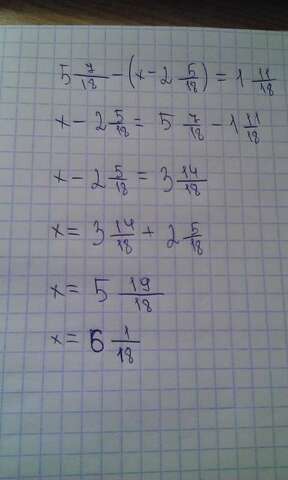 5 7/18 - (x - 2 5/18) = 1 11/18
x - 2 5/18 = 5 7/18 - 1 11/18
x - 2 5/18 = 3 14/18
x = 3 14/18 + 2 5/18
x = 5 19/18
x = 6 1/18